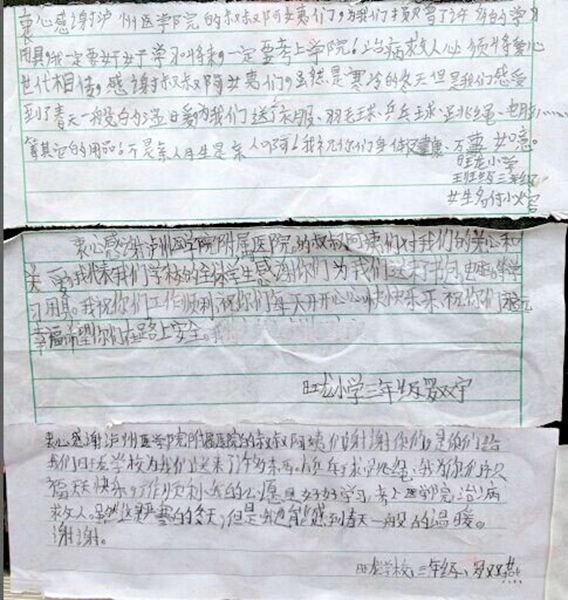 衷心感谢泸州医学院的叔叔阿姨们,为我们捐赠了许多的学习
用具,我一定要好好学习,将来,一定要考上学院!治病救人,必须将爱心
世代相传,感谢叔叔阿姨们,虽然是寒冷的冬天但是我们感受
到了春天一般的温暖为我们送了衣服、羽毛球、乒乓球、跳绳、电脑……
等其它的用品。不是亲人胜是亲人 我祝你们身体健康、万事如意。
旺龙小学
三年级
女生
衷心感谢泸州医学院附属医院的叔叔阿姨们对我们的关心和
关爱我代表我们学校的全体学生感谢你们为我们送来了书包,电脑等学
习用具。我祝你们工作顺利,祝你们每天开开心心快快乐乐,祝你们
幸福希望你们在路上安全。
旺龙小学三年级罗双宁
衷心感谢泸州医学院附属医院的叔叔阿姨们谢谢你们,是你们给
我们旺龙学校为我们送来了许多东西。乒乓球,跳绳,我为你们
福天天快乐,工作顺利,我的心愿是好好学习,考上医学院治病
救人。虽然这是严寒的冬天,但是我也能感到春天一般的温暖。
谢谢。
旺龙学校,三年级,罗双燕